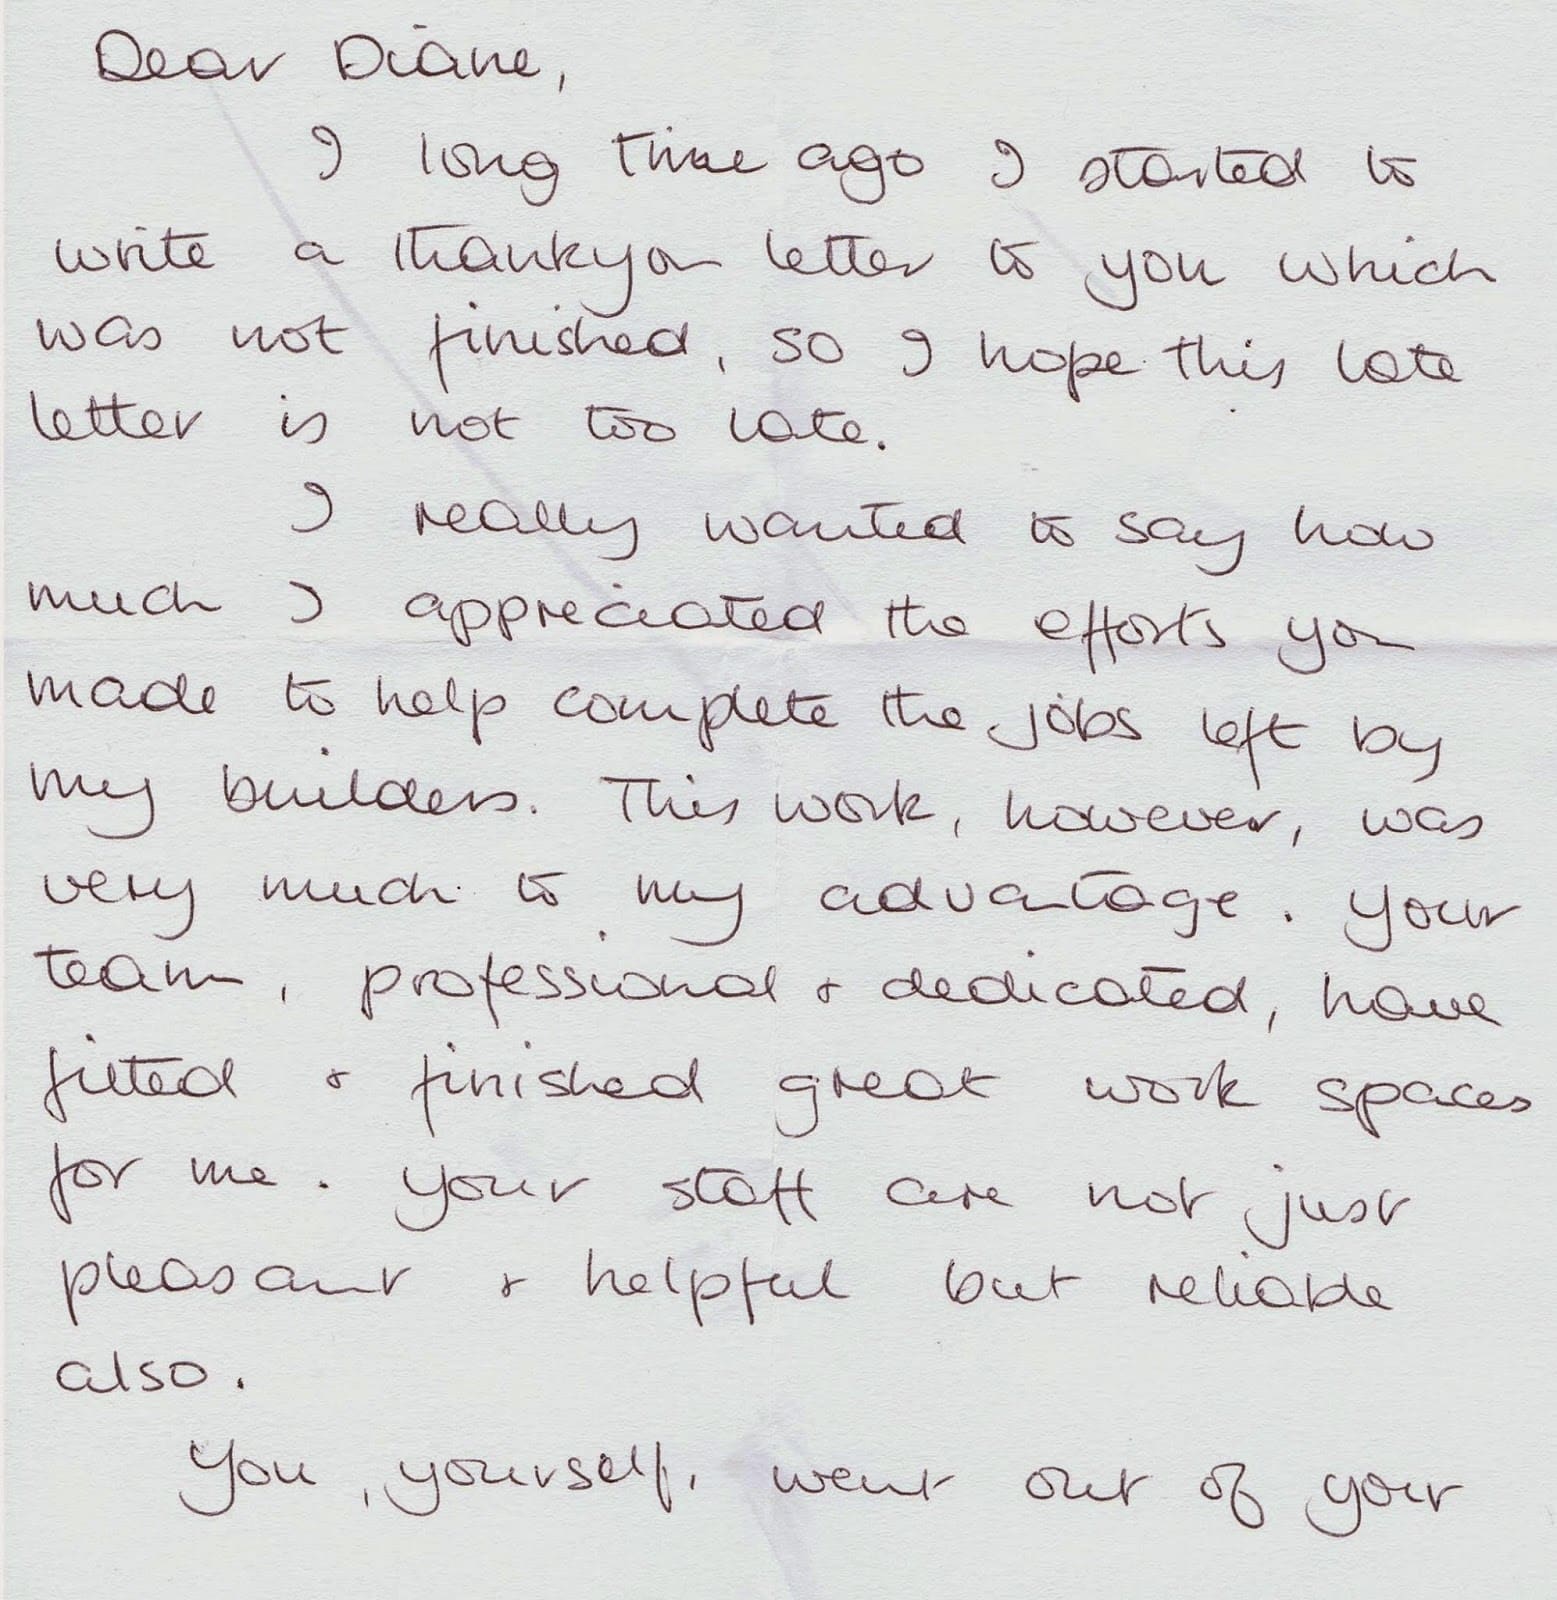 Dear Diane,
I long time ago I started to
write a thankyou letter to you which
was not finished, so I hope this late
letter is not too late.
I really wanted to say how
much I appreciated the efforts you
made to help complete the jobs left by
my builders. This work, however, was
very much to my advantage. Your
team, professional & dedicated, have
fitted & finished great work spaces
for me. Your staff are not just
pleasant & helpful but reliable
also.
You, yourself, went out of your